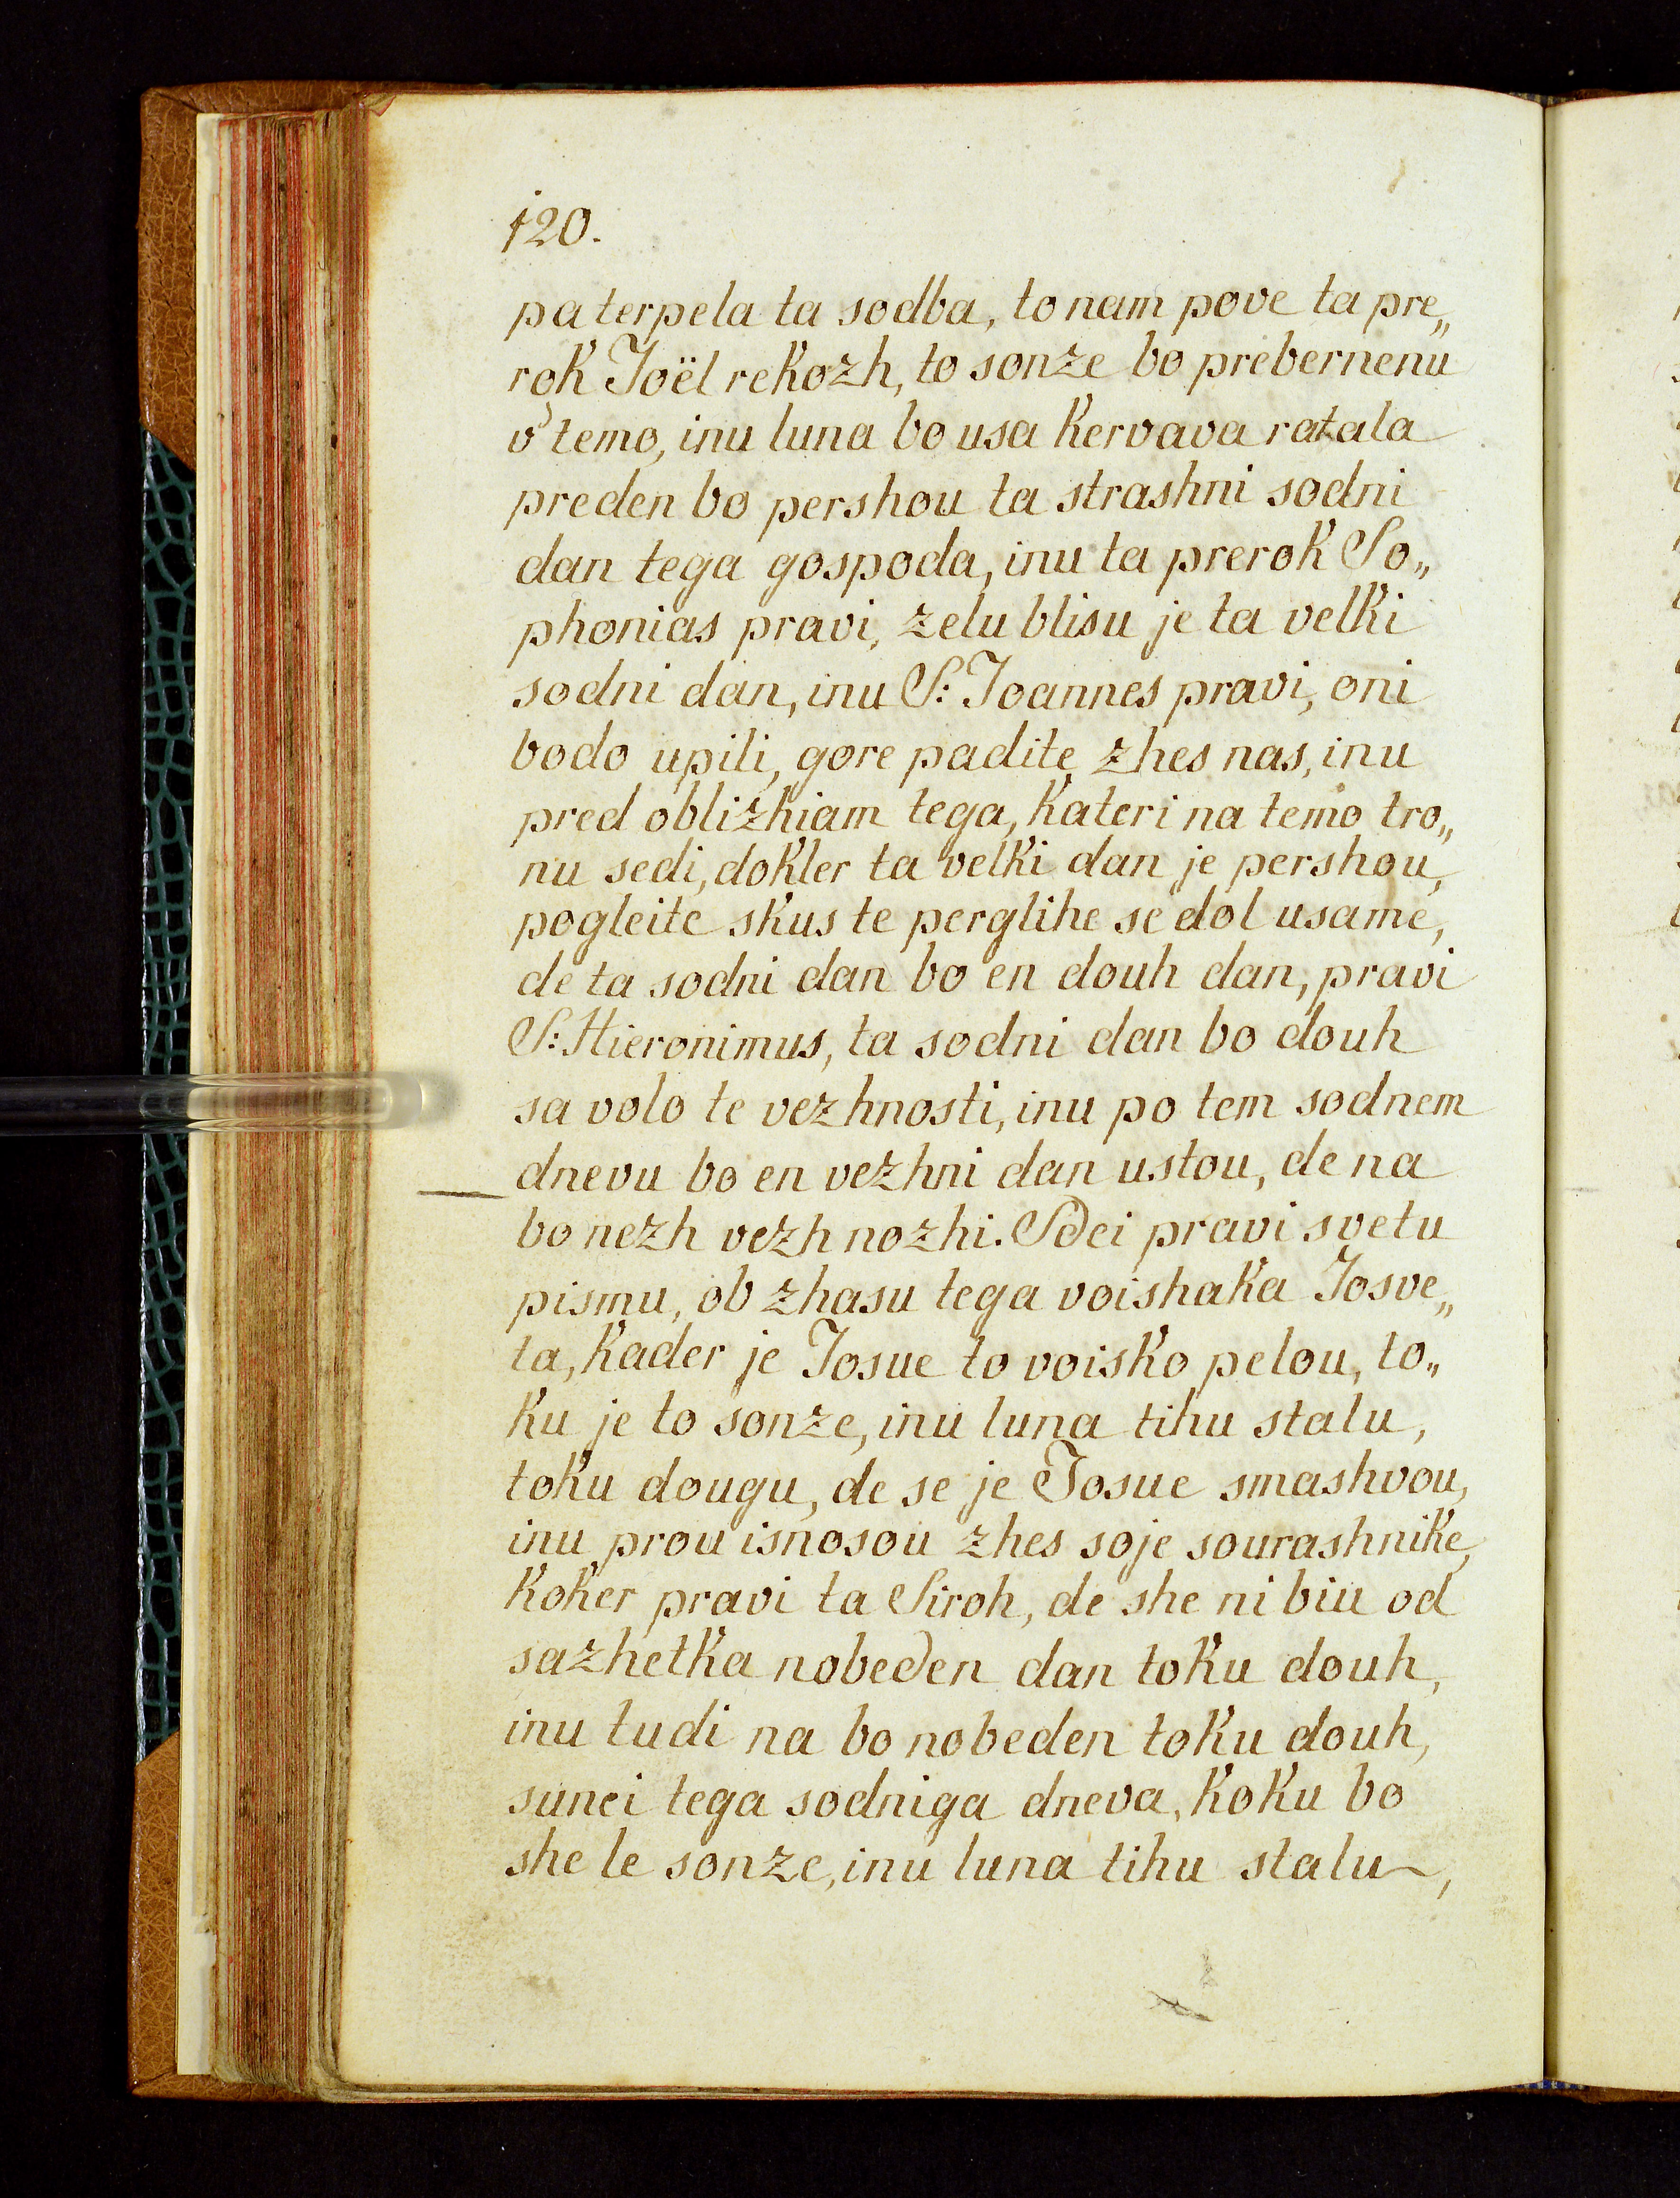 120.
pa terpela ta sodba, to nam pove ta pre„
rok Joël rekozh, to sonze bo prebernenu
v' temo, inu luna bo usa kervava ratala
preden bo pershou ta strashni sodni
dan tega gospoda, inu ta prerok So„
phonias pravi, zelu blisu je ta velki
sodni dan, inu S: Joannes pravi, oni
bodo upili, gore padite zhes nas, inu
pred oblizhiam tega, kateri na temo tro„
nu sedi, dokler ta velki dan je pershou,
pogleite skus te perglihe se dol usame,
de ta sodni dan bo en douh dan, pravi
S: Hieronimus, ta sodni dan bo douh
sa volo te vezhnosti, inu po tem sodnem
dnevu bo en vezhni dan ustou, de na
bo nezh vezh nozhi. Sdei pravi svetu
pismu, ob zhasu tega voishaka Josve„
ta, kader je Josue to voisko pelou, to„
ku je to sonze, inu luna tihu stalu,
toku dougu, de se je Josue smashvou,
inu prou isnosou zhes soje sourashnike,
koker pravi ta Siroh, de she ni biu od
sazhetka nobeden dan toku douh,
inu tudi na bo nobeden toku douh,
sunei tega sodniga dneva, koku bo
she le sonze, inu luna tihu stalu,